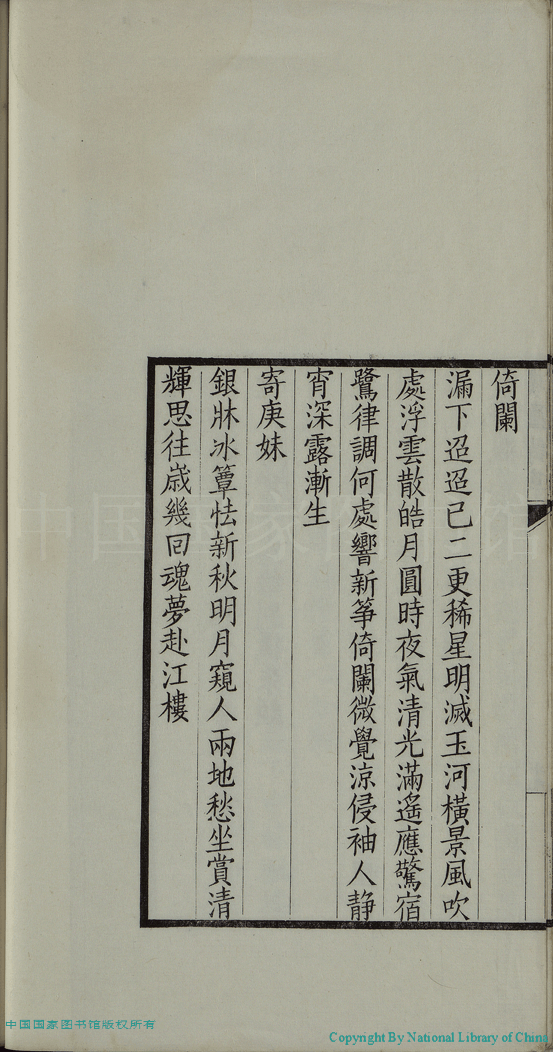 倚闌
漏下迢迢已二更稀星明滅玉河橫景風吹
處浮雲散皓月圓時夜氣清光滿遙應驚宿
鷺律調何處響新箏倚闌微覺涼侵袖人静
宵深露漸生
寄庚妹
銀牀冰簟怯新秋明月窺人兩地愁坐賞清
輝思往歳幾回魂夢赴江樓
中国国家图书馆
中国国家图书馆版权所有
Copyright By National Library of China